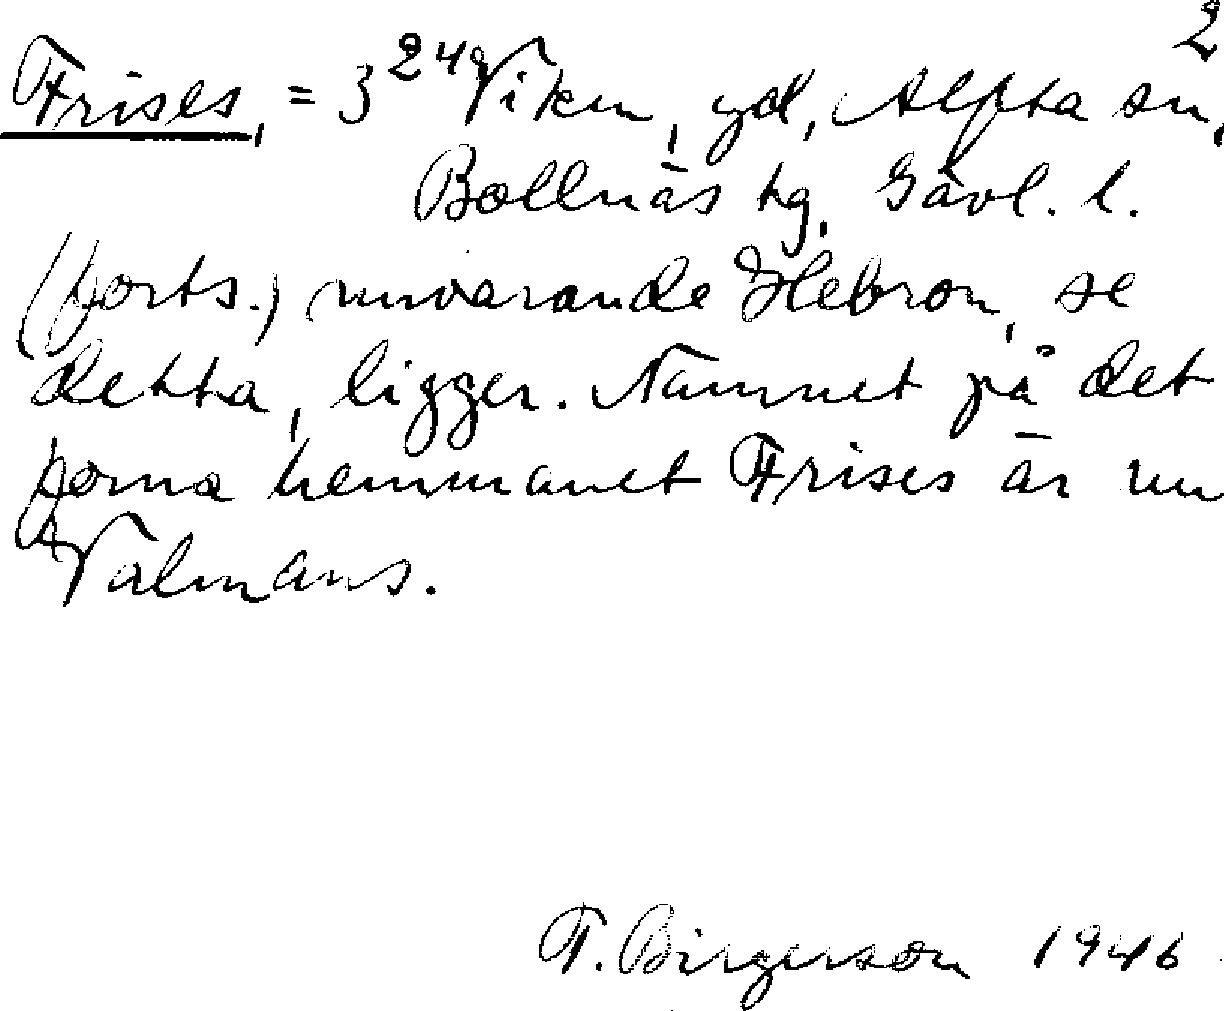 2
Frises, = 3²⁴ Viken, gd, Alfta sn,
Bollnäs tg, Gävl. l.
(forts.) nuvarande Hebron, se
detta, ligger. Namnet på det
forna hemmanet Frises är nu
Valmans.
F. Birgerson 1946